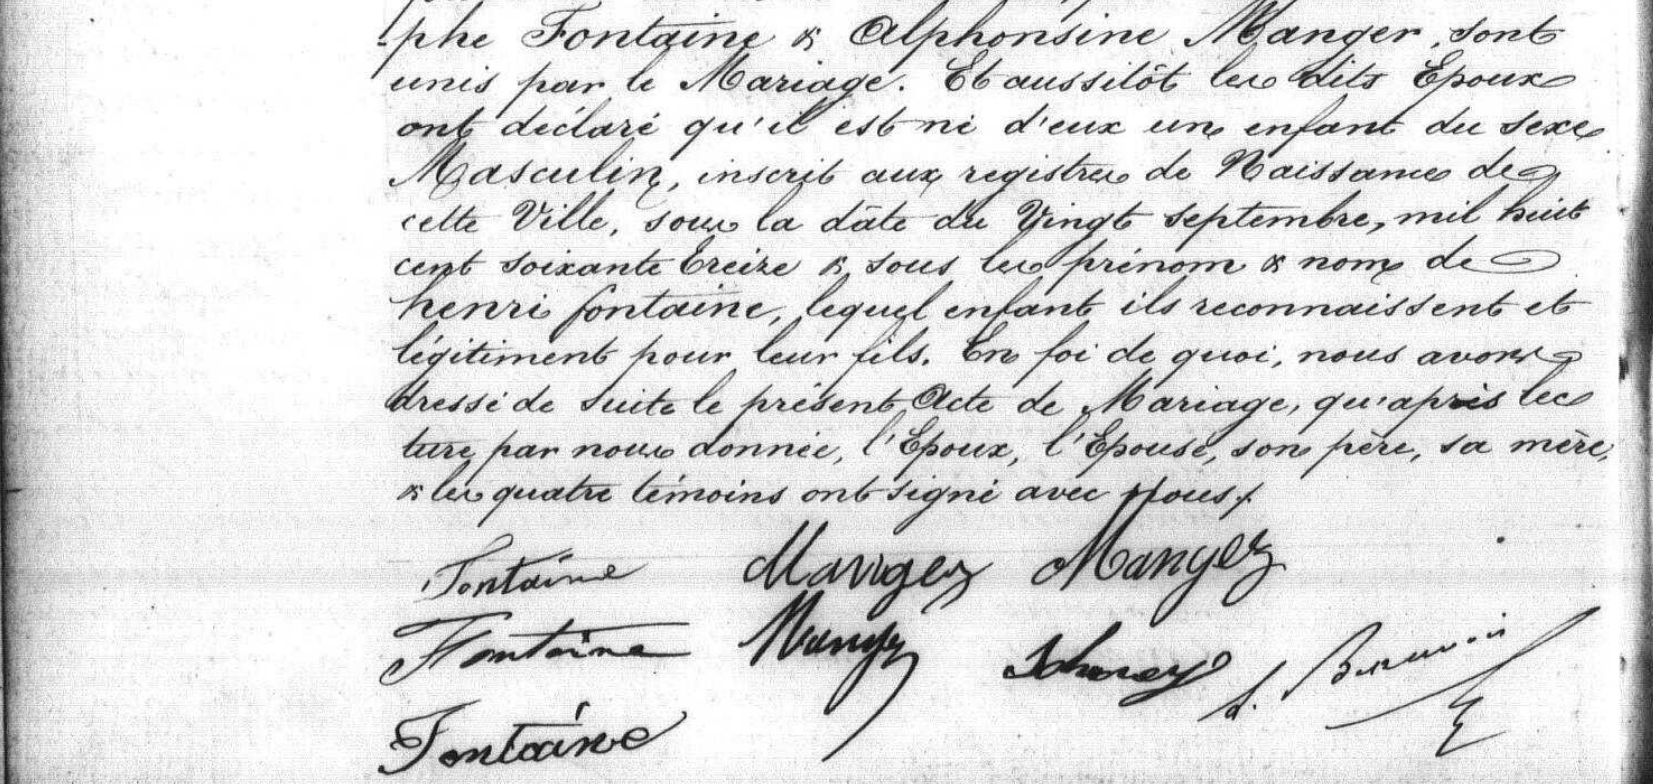 -phe Fontaine & Alphonsine Manger, sont
unis par le Mariage. Et aussitôt les dits Epoux
ont déclaré qu'il est né d'eux un enfant du sexe
Masculin, inscrit aux registres de Naissance de
cette Ville, sous la dâte du Vingt septembre, mil huit
cent soixante treize & sous les prénom & nom de
henri fontaine, lequel enfant ils reconnaissent et
légitiment pour leur fils. En foi de quoi, nous avons
dressé de suite le présent Acte de Mariage, qu'après lec
ture par nous donnée, l'Epoux, l'Epouse, son père, sa mère,
& les quatre témoins ont signé avec Nous./.
Fontaine Manger Manger
Fontaine Manger
Fontaine